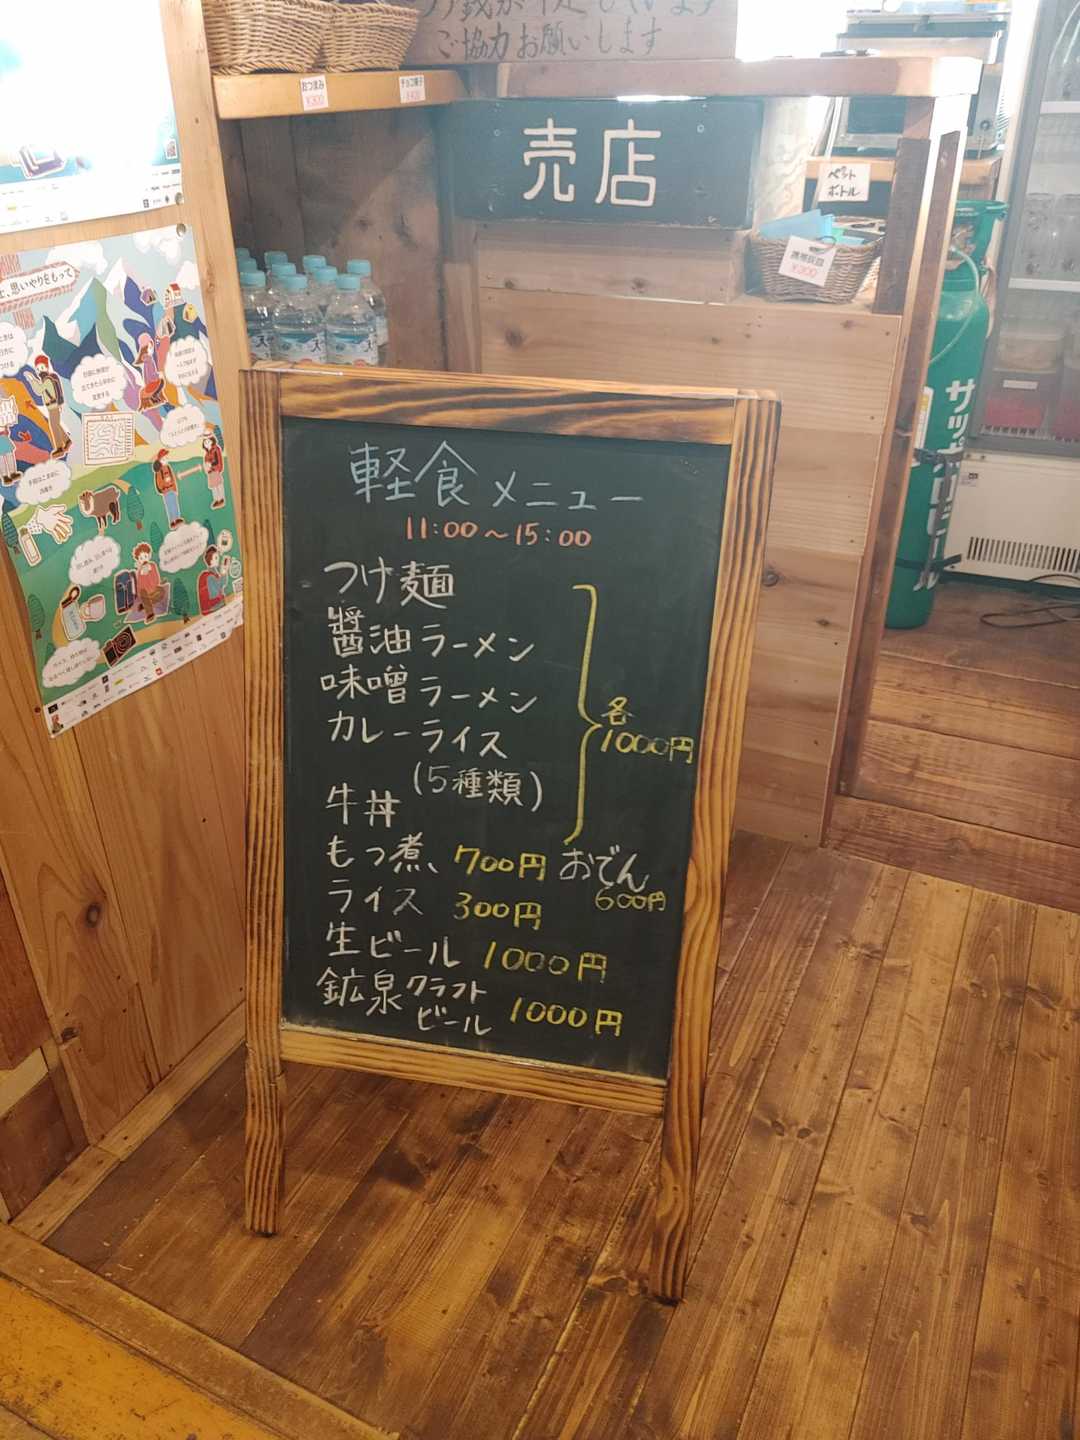 ご協力お願いします
おつまみ
¥300
チョコ菓子
売店
ペット
ボトル
携帯灰皿
¥300
サッポロビール
思いやりをもって
軽食メニュー
11:00～15:00
つけ麺
醬油ラーメン
味噌ラーメン
カレーライス
(5種類)
牛丼
各
1000円
もつ煮、700円 おでん
600円
ライス 300円
生ビール 1000円
鉱泉クラフト
ビール 1000円